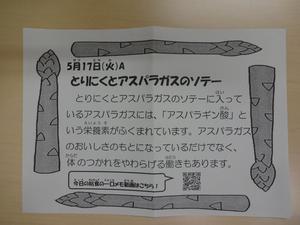 5月17日(火)A
とりにくとアスパラガスのソテー
とりにくとアスパラガスのソテーに入って
いるアスパラガスには、「アスパラギン酸」と
いう栄養素がふくまれています。アスパラガス
のおいしさのもとになっているだけでなく、
体のつかれをやわらげる働きもあります。
今日の給食の一口メモ動画はこちら!